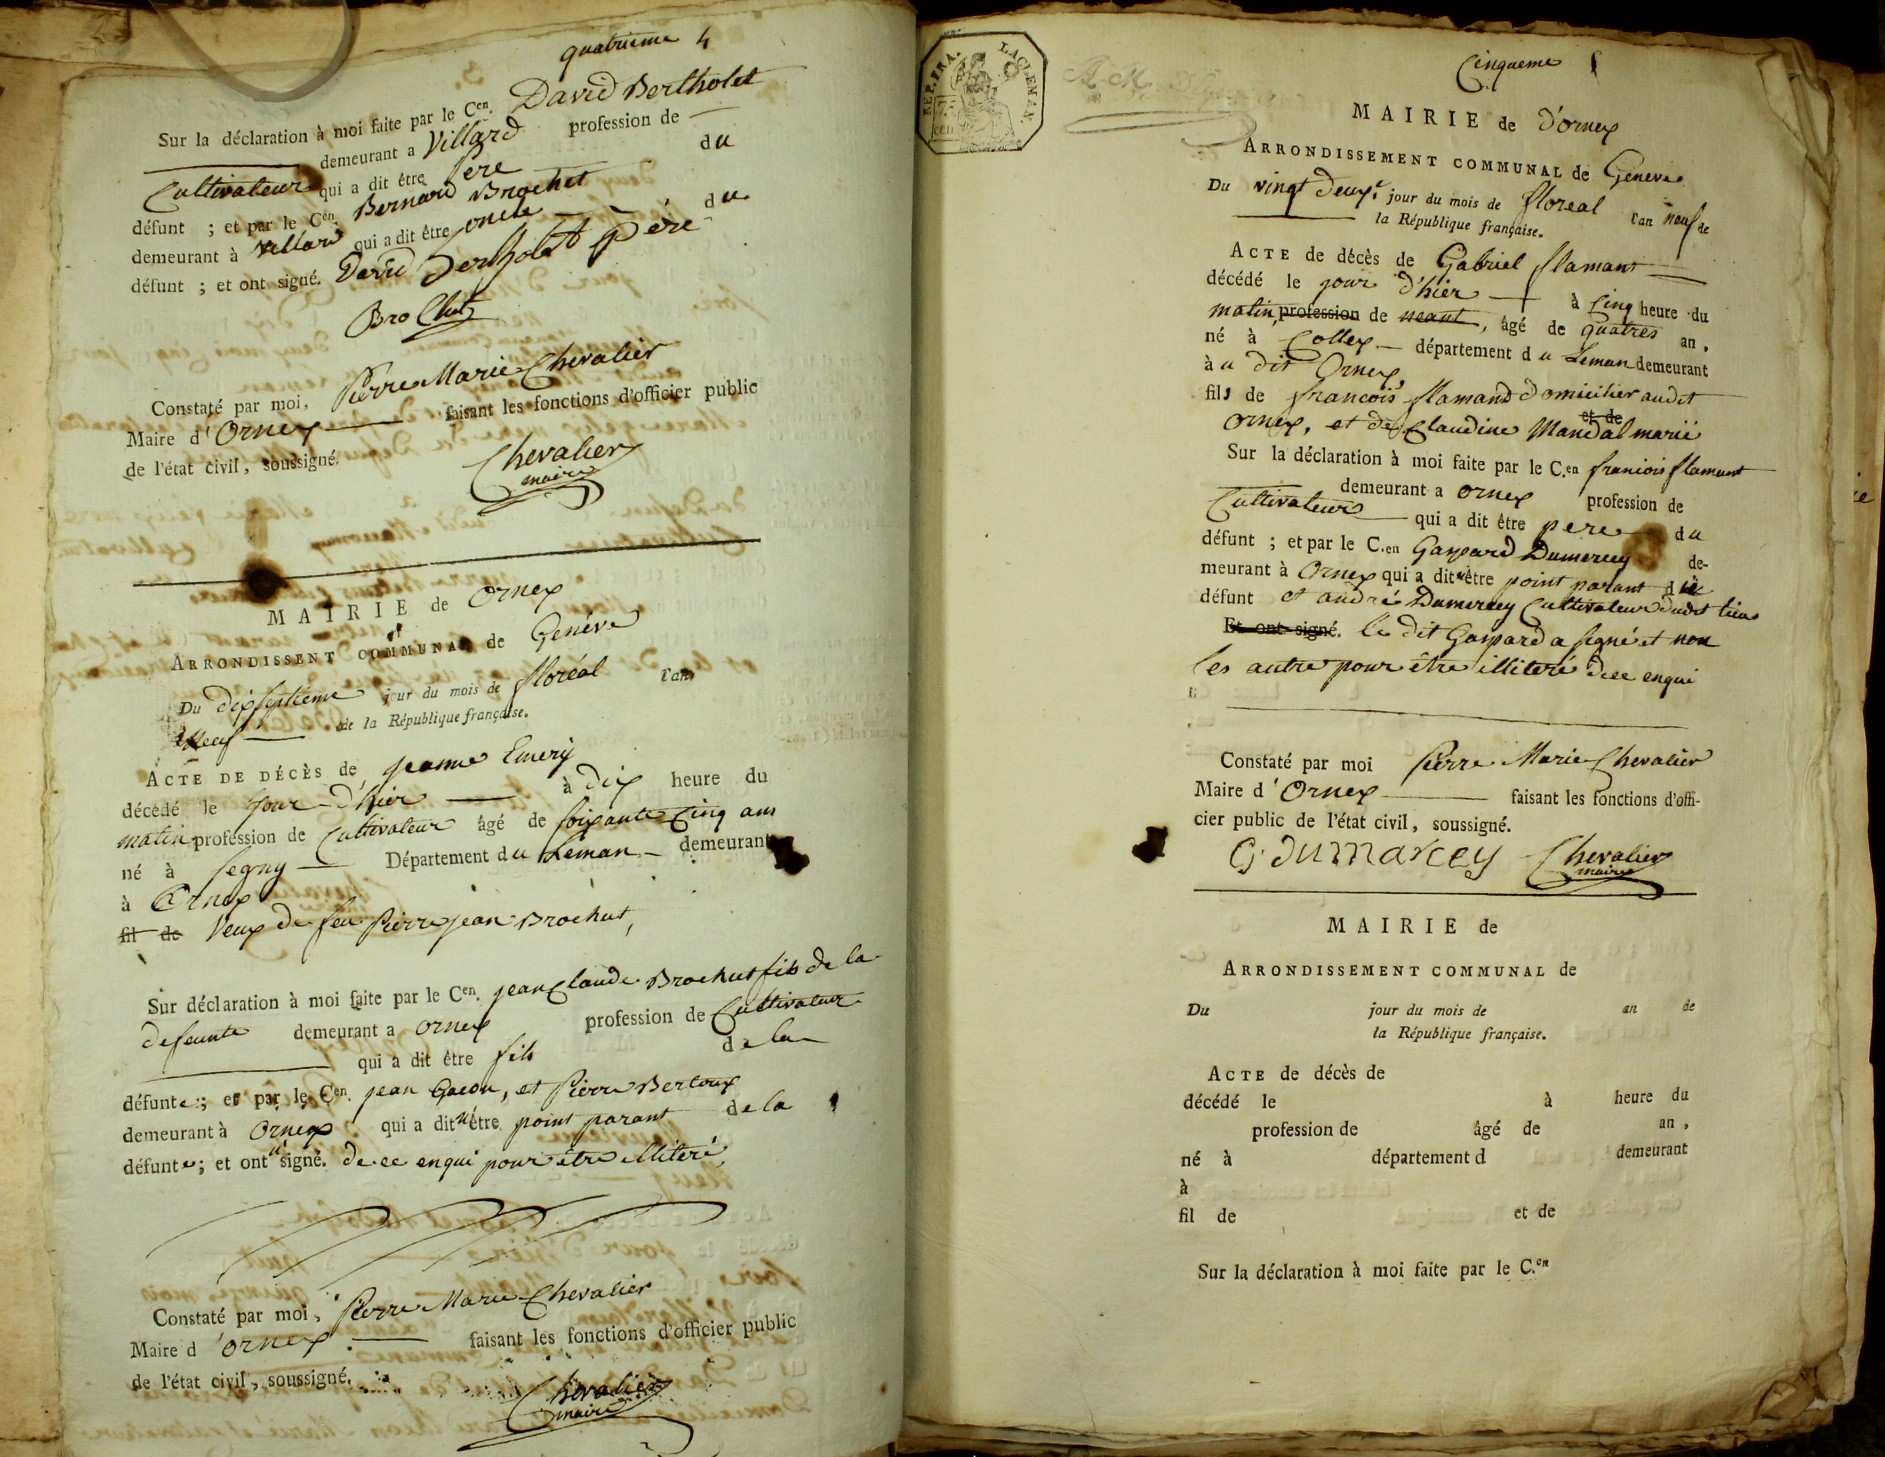 quatrieme 4
Sur la déclaration à moi faite par le Cen. David Bertholet
demeurant a Villard profession de
Cultivateur qui a dit être père du
défunt ; et par le Cen. Bernard Brochet
demeurant à Villard qui a dit être oncle du
défunt ; et ont signé. David Bertholet père
Brochut
Constaté par moi, Pierre Marie Chevalier
Maire d'Ornex faisant les fonctions d'officier public
de l'état civil, soussigné.
Chevalier
maire
MAIRIE de Ornex
ARRONDISSENT COMMUNAL de Genève
Du dixseptieme jour du mois de floréal l'an
neuf de la République française.
ACTE DE DÉCÈS de jeanne Emery
décédé le jour d'hier à dix heure du
matin profession de Cultivateur âgé de soixante Cinq ans
né à segny Département du Leman demeurant
à Ornex
fil de Veuve de feu Pierre jean Brochut,
Sur déclaration à moi faite par le Cen. jean Claude Brochut fils de la
defeunte demeurant a ornex profession de Cultivateur
qui a dit être fils de la
défunte ; et par le Cen. jean Gacon, et Pierre Bertoux
demeurant à Ornex qui a dit n'être point parant de la
défunte ; et ont signé. de ce enqui pour être illiteré
Constaté par moi, Pierre Marie Chevalier
Maire d'ornex faisant les fonctions d'officier public
de l'état civil, soussigné.
Chevalier
maire
REP. FRA.
LA CLEMAN.
Cinqueme 5
MAIRIE de d'ornex
ARRONDISSEMENT COMMUNAL de Geneve
Du vingt deuxe. jour du mois de floreal l'an neuf de
la République française.
ACTE de décès de Gabriel flamant
décédé le jour d'hier à Cinq heure du
matin, profession de neant, âgé de quatres an,
né à Collex département du Leman demeurant
à u dit Ornex
fils de francois flamand domicilier audit
et de
ornex, et de Claudine Mandal marié
Sur la déclaration à moi faite par le C.en francois flamant
demeurant a ornex profession de
Cultivateur qui a dit être pere du
défunt ; et par le C.en Gaspard Dumercey de-
meurant à Ornex qui a dit n'être point parant du
défunt et andré Dumercey Cultivateur dudit lieu
Et ont signé. le dit Gaspard a signé et non
les autre pour être illiteré de ce enqui
Constaté par moi Pierre Marie Chevalier
Maire d'Ornex faisant les fonctions d'offi-
cier public de l'état civil, soussigné.
G. dumarcey Chevalier
maire
MAIRIE de
ARRONDISSEMENT COMMUNAL de
Du jour du mois de an de
la République française.
ACTE de décès de
décédé le à heure du
profession de âgé de an,
né à département d demeurant
à
fil de et de
Sur la déclaration à moi faite par le C.en